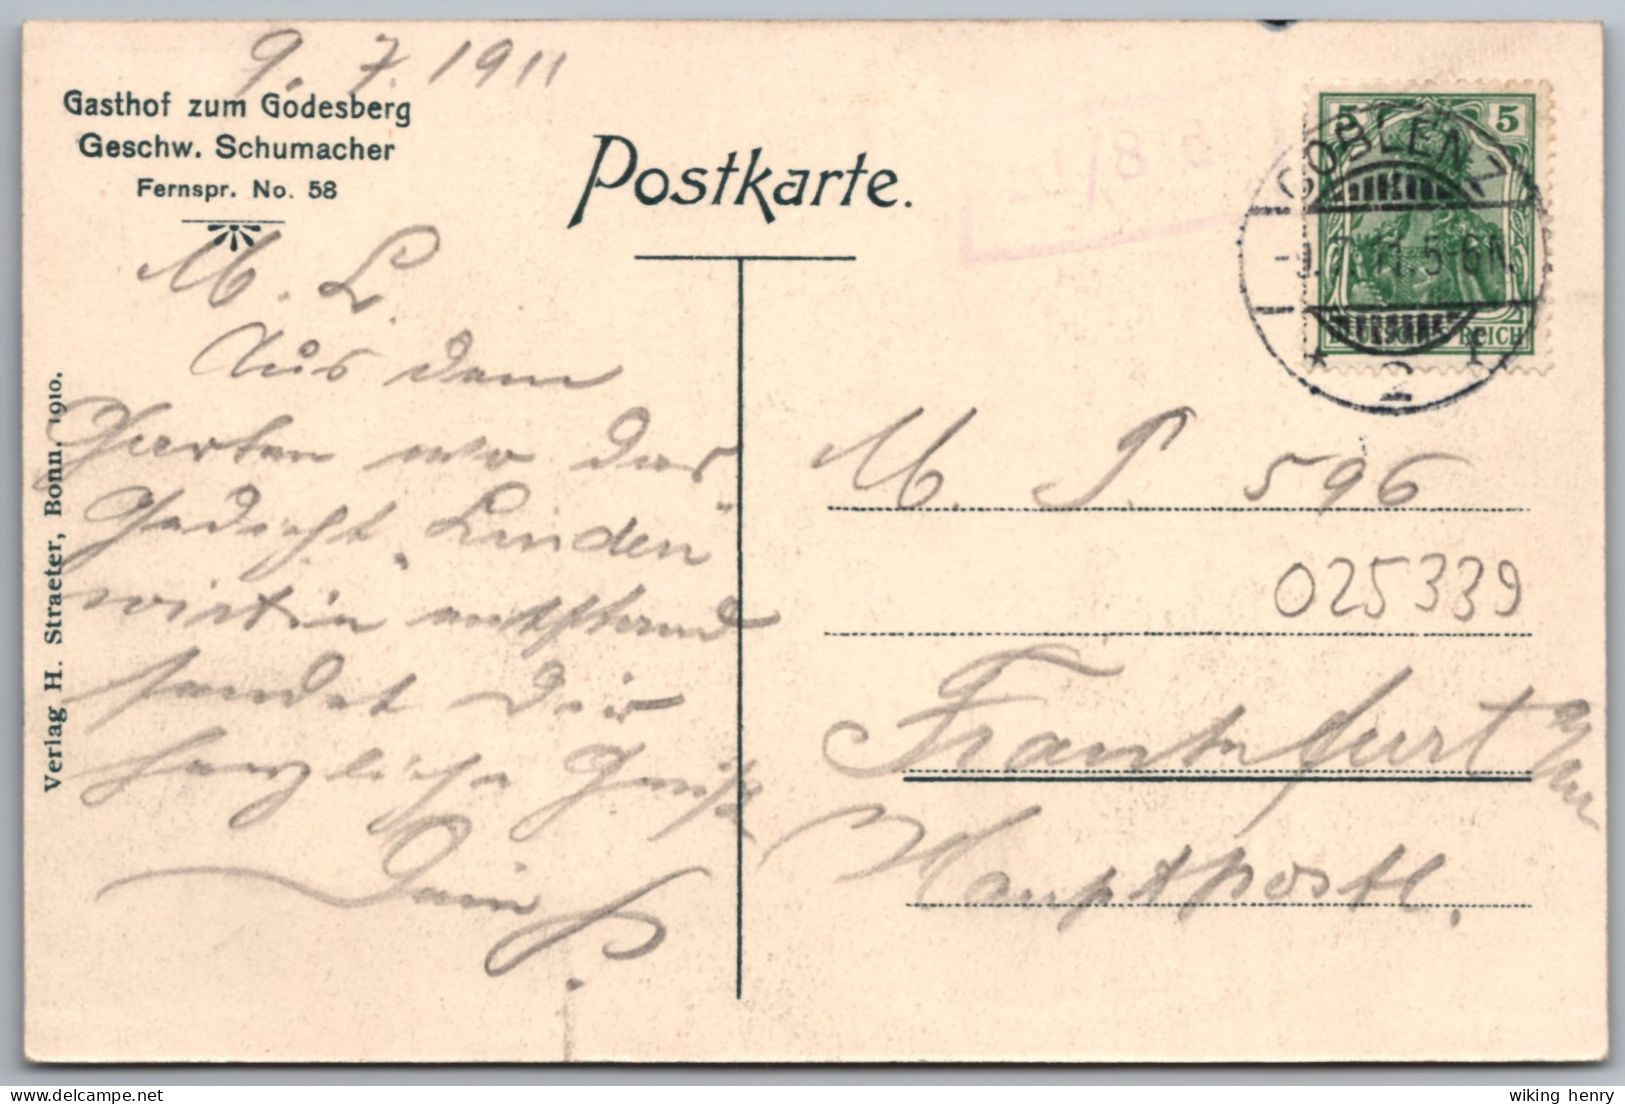 9. 7. 1911
Gasthof zum Godesberg
Geschw. Schumacher
Fernspr. No. 58
Postkarte.
M. L.
Aus dem
Garten wo das
Gedicht „Linden
wirtin“ entstand
sendet Dir
herzliche Grüße
Dein
Verlag H. Straeter, Bonn. 1910.
5 5
DEUTSCHES REICH
COBLENZ
-9.7.11.5-6N.
* 2 f
M. P. 596
025339
Frankfurt a/M
Hauptpostl.
wiking henry